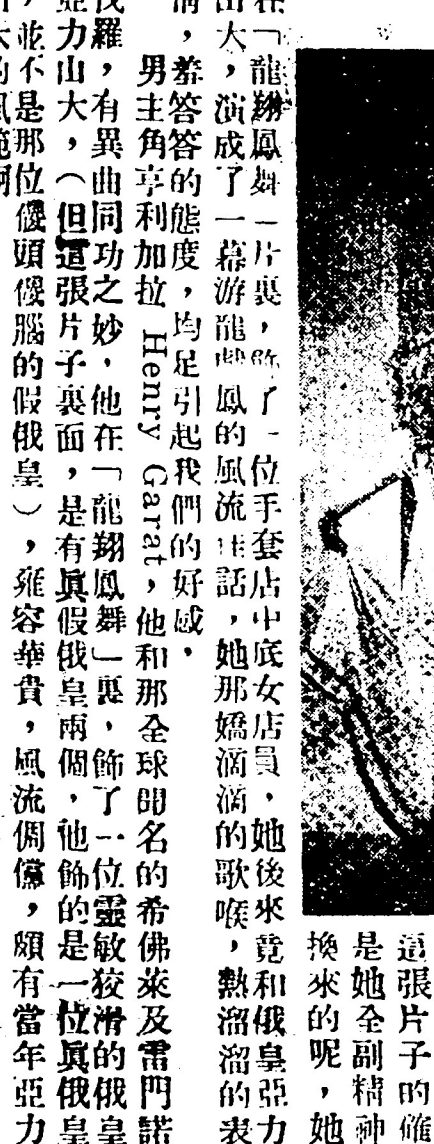 這張片子的
是她全副精神
換來的呢，她
在「龍翔鳳舞」一片裏，飾了一位手套店中底女店員，她後來竟和俄皇亞力
山大，演成了一幕游龍戲鳳的風流佳話，她那嬌滴滴的歌喉，熱溜溜的表
情，羞答答的態度，均足引起我們的好感，
男主角亨利加拉 Henry Garat，他和那全球聞名的希佛萊及雷門諾
伐羅，有異曲同功之妙，他在「龍翔鳳舞」裏，飾了一位靈敏狡滑的俄皇
亞力山大，（但這張片子裏面，是有眞假俄皇兩個，他飾的是一位眞俄皇
，並不是那位儍頭儍腦的假俄皇），雍容華貴，風流倜儻，頗有當年亞力